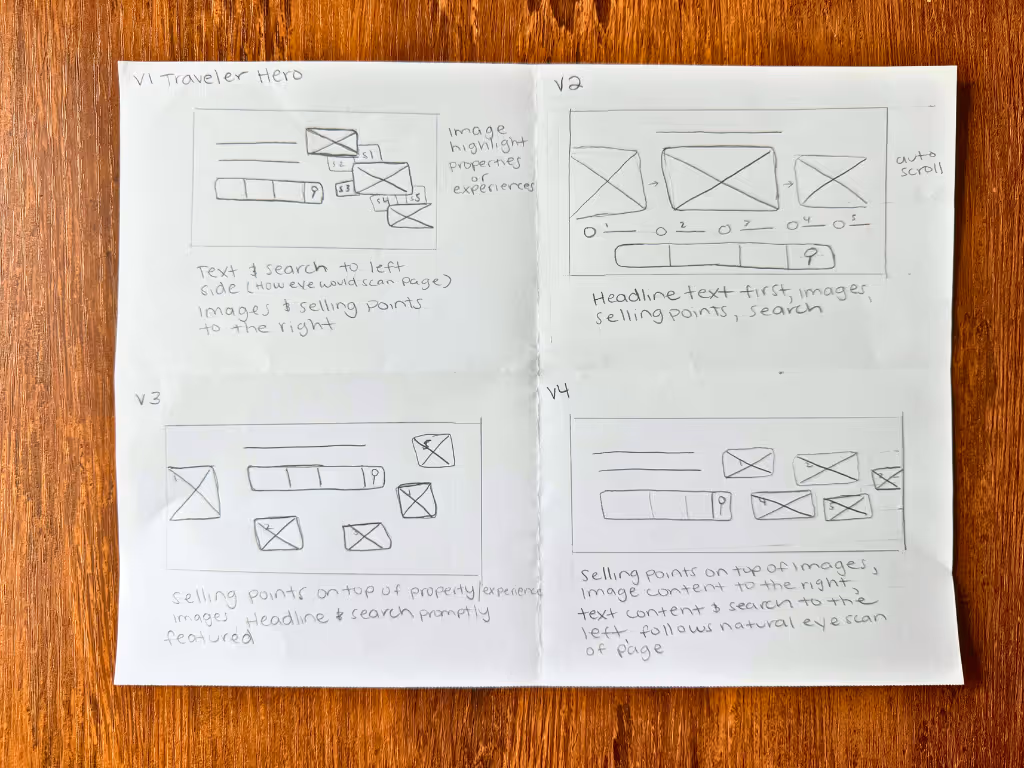 V1 Traveler Hero
Image
highlight
properties
or
experiences
S1
S2
S3
S4
S5
Text & search to left
side (How eye would scan page)
Images & selling points
to the right
V2
auto
scroll
1
2
3
4
5
Headline text first, images,
selling points, search
V3
1
2
3
4
5
Selling points on top of property/experience
images, Headline & search promptly
featured
V4
1
2
4
5
Selling points on top of images,
image content to the right,
text content & search to the
left follows natural eye scan
of page